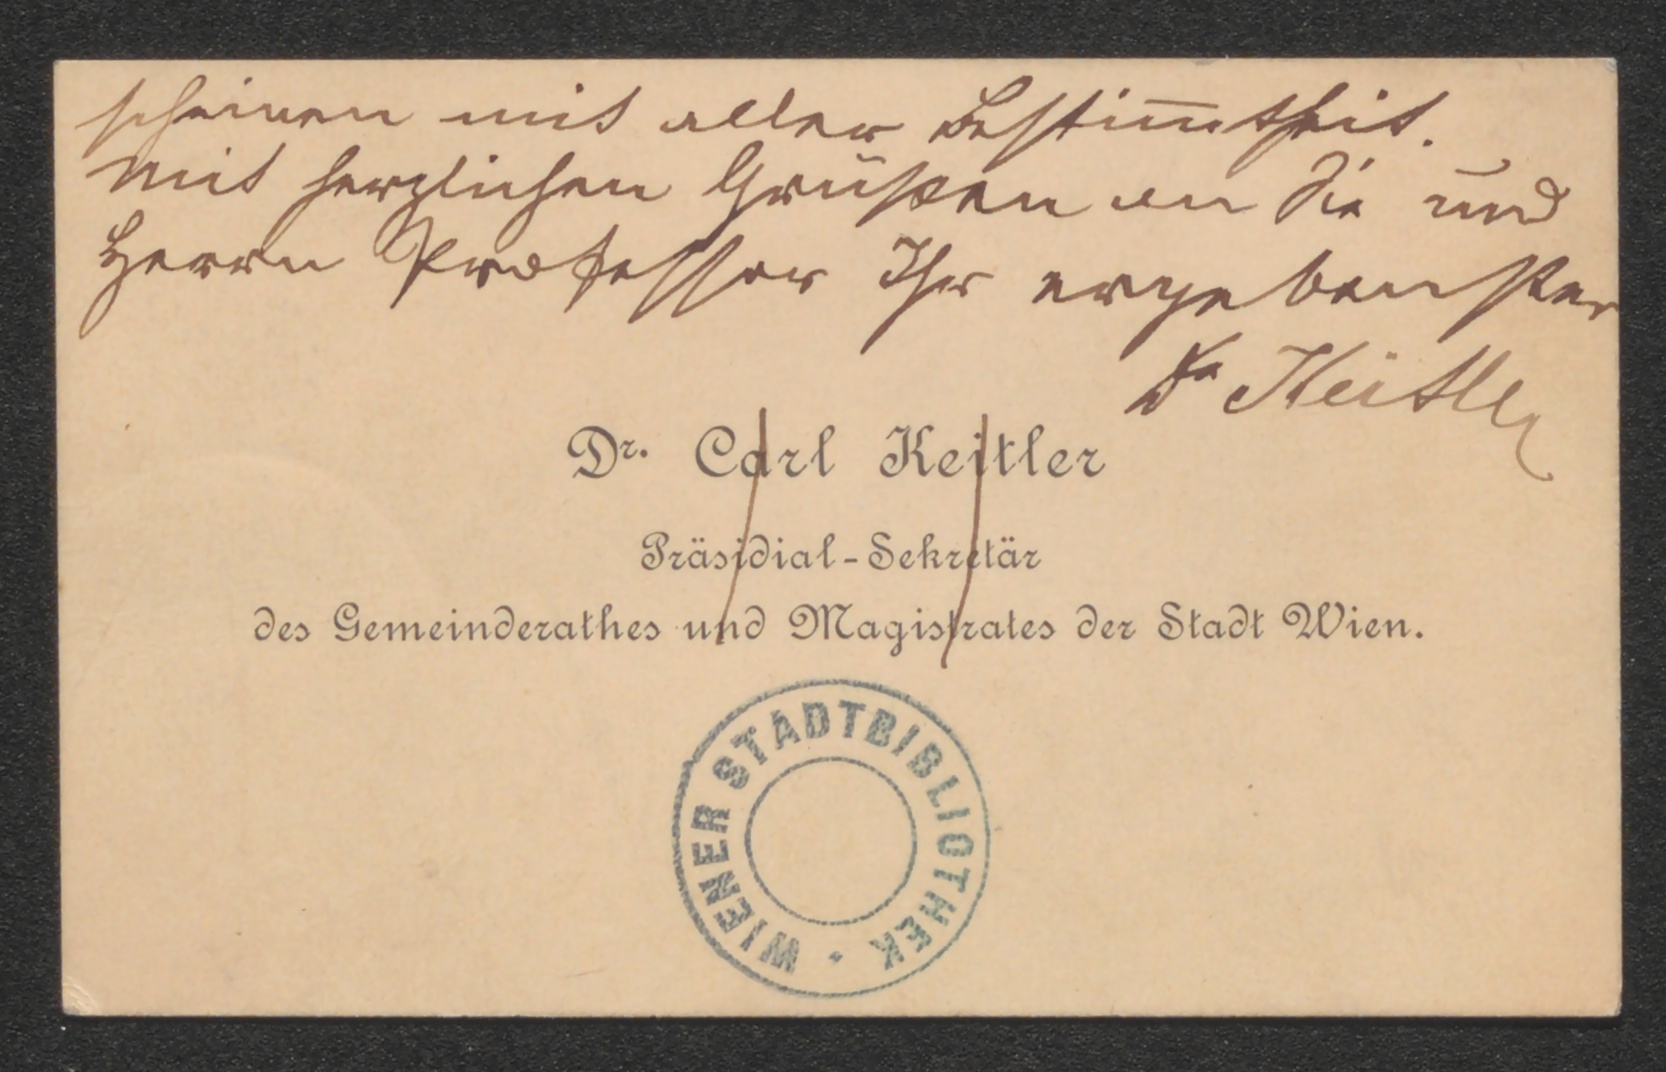 scheinen mit aller Bestim̅theit.
Mit herzlichen Grüßen an Sie und
Herrn Professor Ihr ergebenster
Dr Keitler
Dr. Carl Keitler
Präsidial-Sekretär
des Gemeinderathes und Magistrates der Stadt Wien.
WIENER STADTBIBLIOTHEK